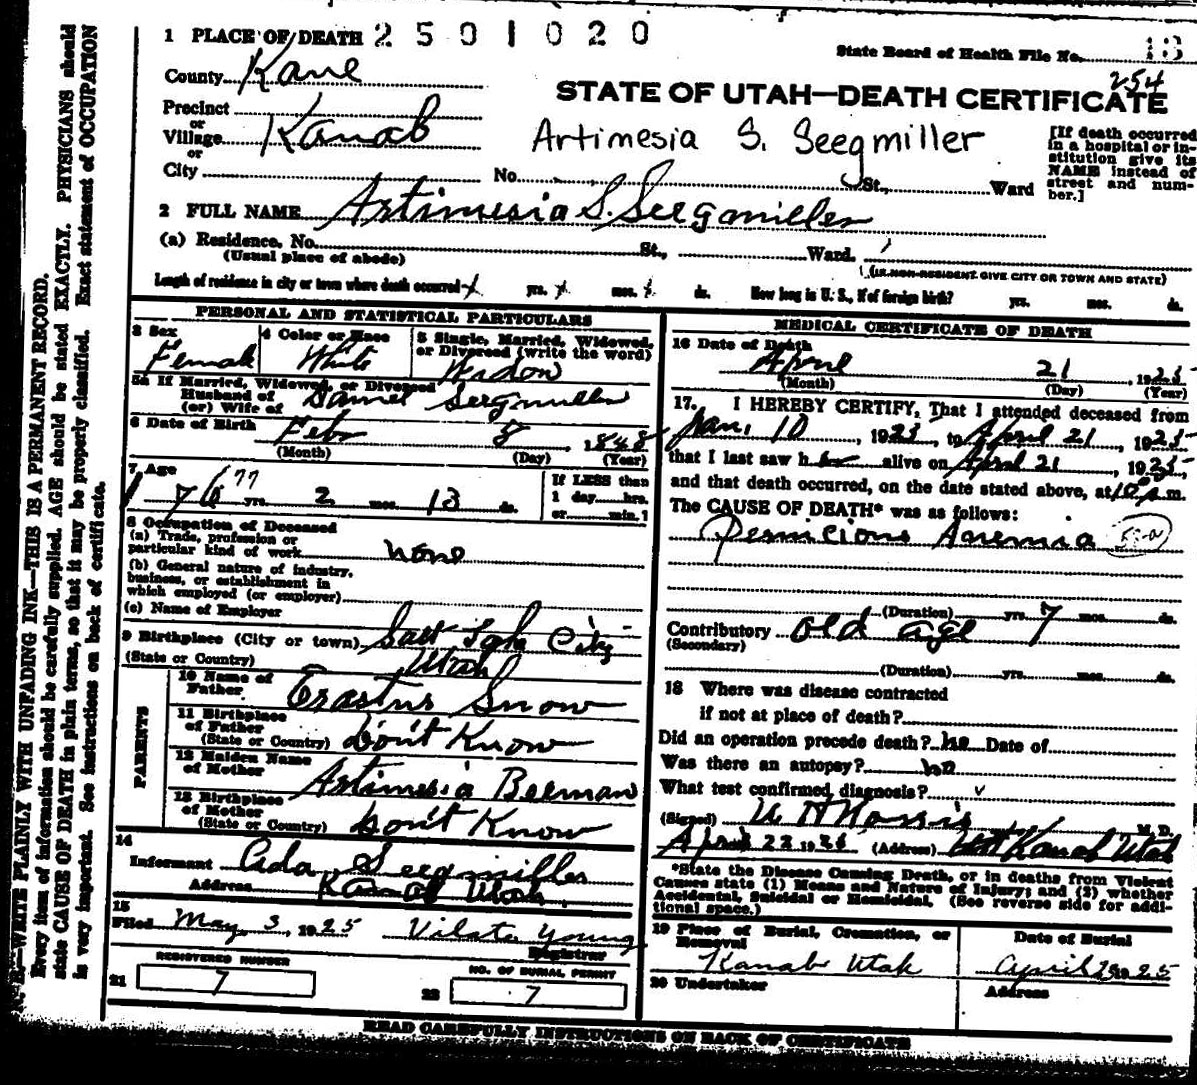 1 PLACE OF DEATH 2501020
State Board of Health File No. 13
County Kane
254
STATE OF UTAH—DEATH CERTIFICATE
Precinct
or
Village Kanab
or
City
Artimesia S. Seegmiller
No. St., Ward
[If death occurred
in a hospital or in-
stitution give its
NAME instead of
street and num-
ber.]
2 FULL NAME Artimesia S. Seegmiller
(a) Residence. No. St., Ward.
(Usual place of abode)
(IF NON-RESIDENT GIVE CITY OR TOWN AND STATE)
Length of residence in city or town where death occurred yrs. mos. ds. How long in U. S., if of foreign birth? yrs. mos. ds.
PERSONAL AND STATISTICAL PARTICULARS
3 Sex
Female
4 Color or Race
White
5 Single, Married, Widowed,
or Divorced (write the word)
Widow
5a If Married, Widowed, or Divorced
Husband of
(or) Wife of Daniel Seegmiller
6 Date of Birth Feb 8, 1848
(Month) (Day) (Year)
7 Age
76 77 yrs. 2 mos. 13 ds.
If LESS than
1 day hrs.
or min.]
8 Occupation of Deceased
(a) Trade, profession or
particular kind of work none
(b) General nature of industry,
business, or establishment in
which employed (or employer)
(c) Name of Employer
9 Birthplace (City or town) Salt Lake City
(State or Country) Utah
PARENTS
10 Name of
Father Erastus Snow
11 Birthplace
of Father
(State or Country) Don't Know
12 Maiden Name
of Mother Artimesia Beeman
13 Birthplace
of Mother
(State or Country) Don't Know
14
Informant Ada Seegmiller
Address Kanab Utah
15
Filed May 3, 1925 Vilate Young
Registrar
REGISTERED NUMBER
21 7
NO. OF BURIAL PERMIT
22 7
MEDICAL CERTIFICATE OF DEATH
16 Date of Death
April 21, 1925
(Month) (Day) (Year)
17. I HEREBY CERTIFY, That I attended deceased from
Jan. 10, 1925, to April 21, 1925
that I last saw her alive on April 21, 1925
and that death occurred, on the date stated above, at 10 m.
The CAUSE OF DEATH* was as follows:
Pernicious Anemia
(Duration) yrs. 7 mos. ds.
Contributory old age
(Secondary)
(Duration) yrs. mos. ds.
18 Where was disease contracted
if not at place of death?
Did an operation precede death? no Date of
Was there an autopsy? no
What test confirmed diagnosis?
(Signed) Norris M. D.
April 22, 1925 (Address) Kanab Utah
*State the Disease Causing Death, or in deaths from Violent
Causes state (1) Means and Nature of Injury; and (2) whether
Accidental, Suicidal or Homicidal. (See reverse side for addi-
tional space.)
19 Place of Burial, Cremation, or
Removal
Kanab Utah
Date of Burial
April 1925
20 Undertaker
Address
READ CAREFULLY INSTRUCTIONS ON BACK OF CERTIFICATE
N. B.—WRITE PLAINLY WITH UNFADING INK—THIS IS A PERMANENT RECORD.
Every item of information should be carefully supplied. AGE should be stated EXACTLY. PHYSICIANS should
state CAUSE OF DEATH in plain terms, so that it may be properly classified. Exact statement of OCCUPATION
is very important. See instructions on back of certificate.